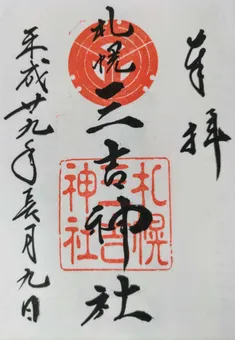 奉拝
札幌
三吉神社
札幌
三吉
神社
平成廿九年長月九日